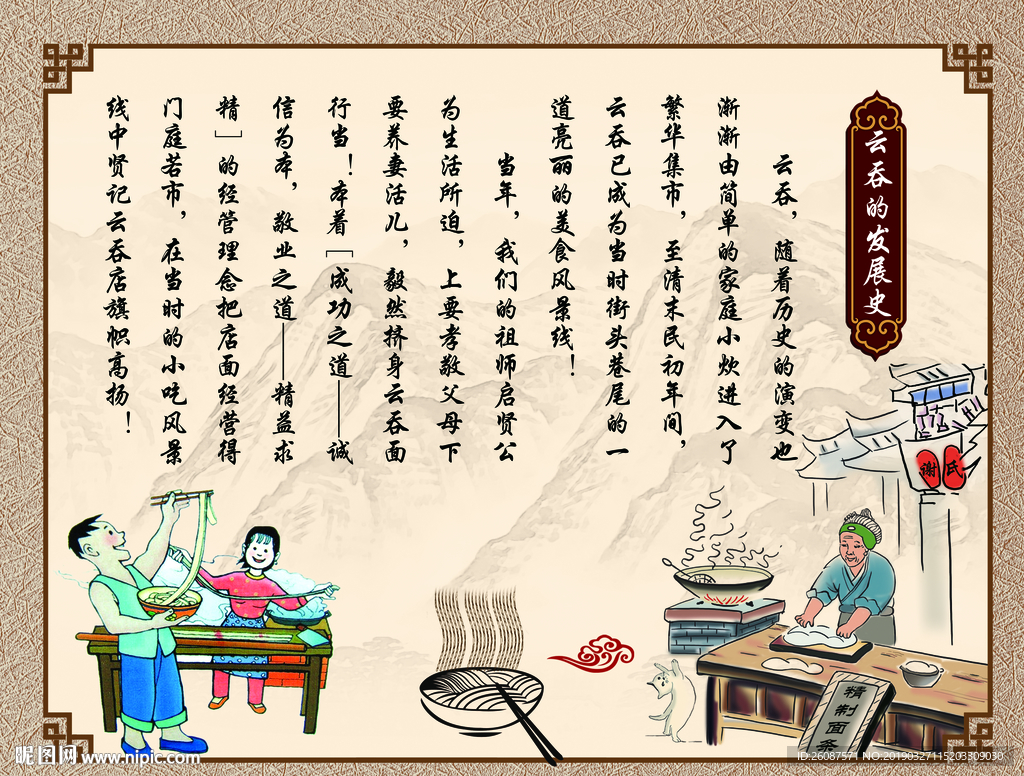 云吞的发展史
云吞，随着历史的演变也
渐渐由简单的家庭小炊进入了
繁华集市，至清末民初年间，
云吞已成为当时街头巷尾的一
道亮丽的美食风景线！
当年，我们的祖师启贤公
为生活所迫，上要孝敬父母下
要养妻活儿，毅然挤身云吞面
行当！本着[成功之道——诚
信为本，敬业之道——精益求
精]的经营理念把店面经营得
门庭若市，在当时的小吃风景
线中贤记云吞店旗帜高扬！
谢氏
精制面条
昵图网 www.nipic.com
ID:26087571 NO:20190327115203309030